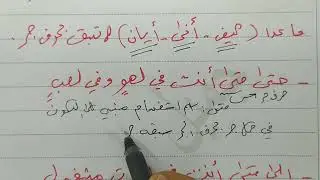 ما عدا (كيف - أنى - أيان) لا تسبق بحرف جر.
- حتى متى أنت في لهو وفي لعب
حرف جر متى: اسم استفهام مبني على السكون
في محل جر بحرف الجر سبقه حر
- إلى متى أنت